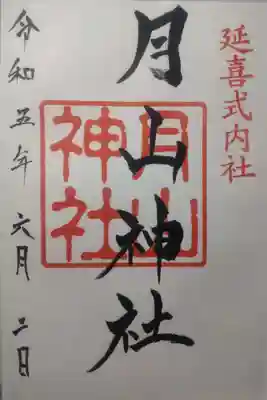 延喜式内社
月山神社
月山神社
令和五年六月二日